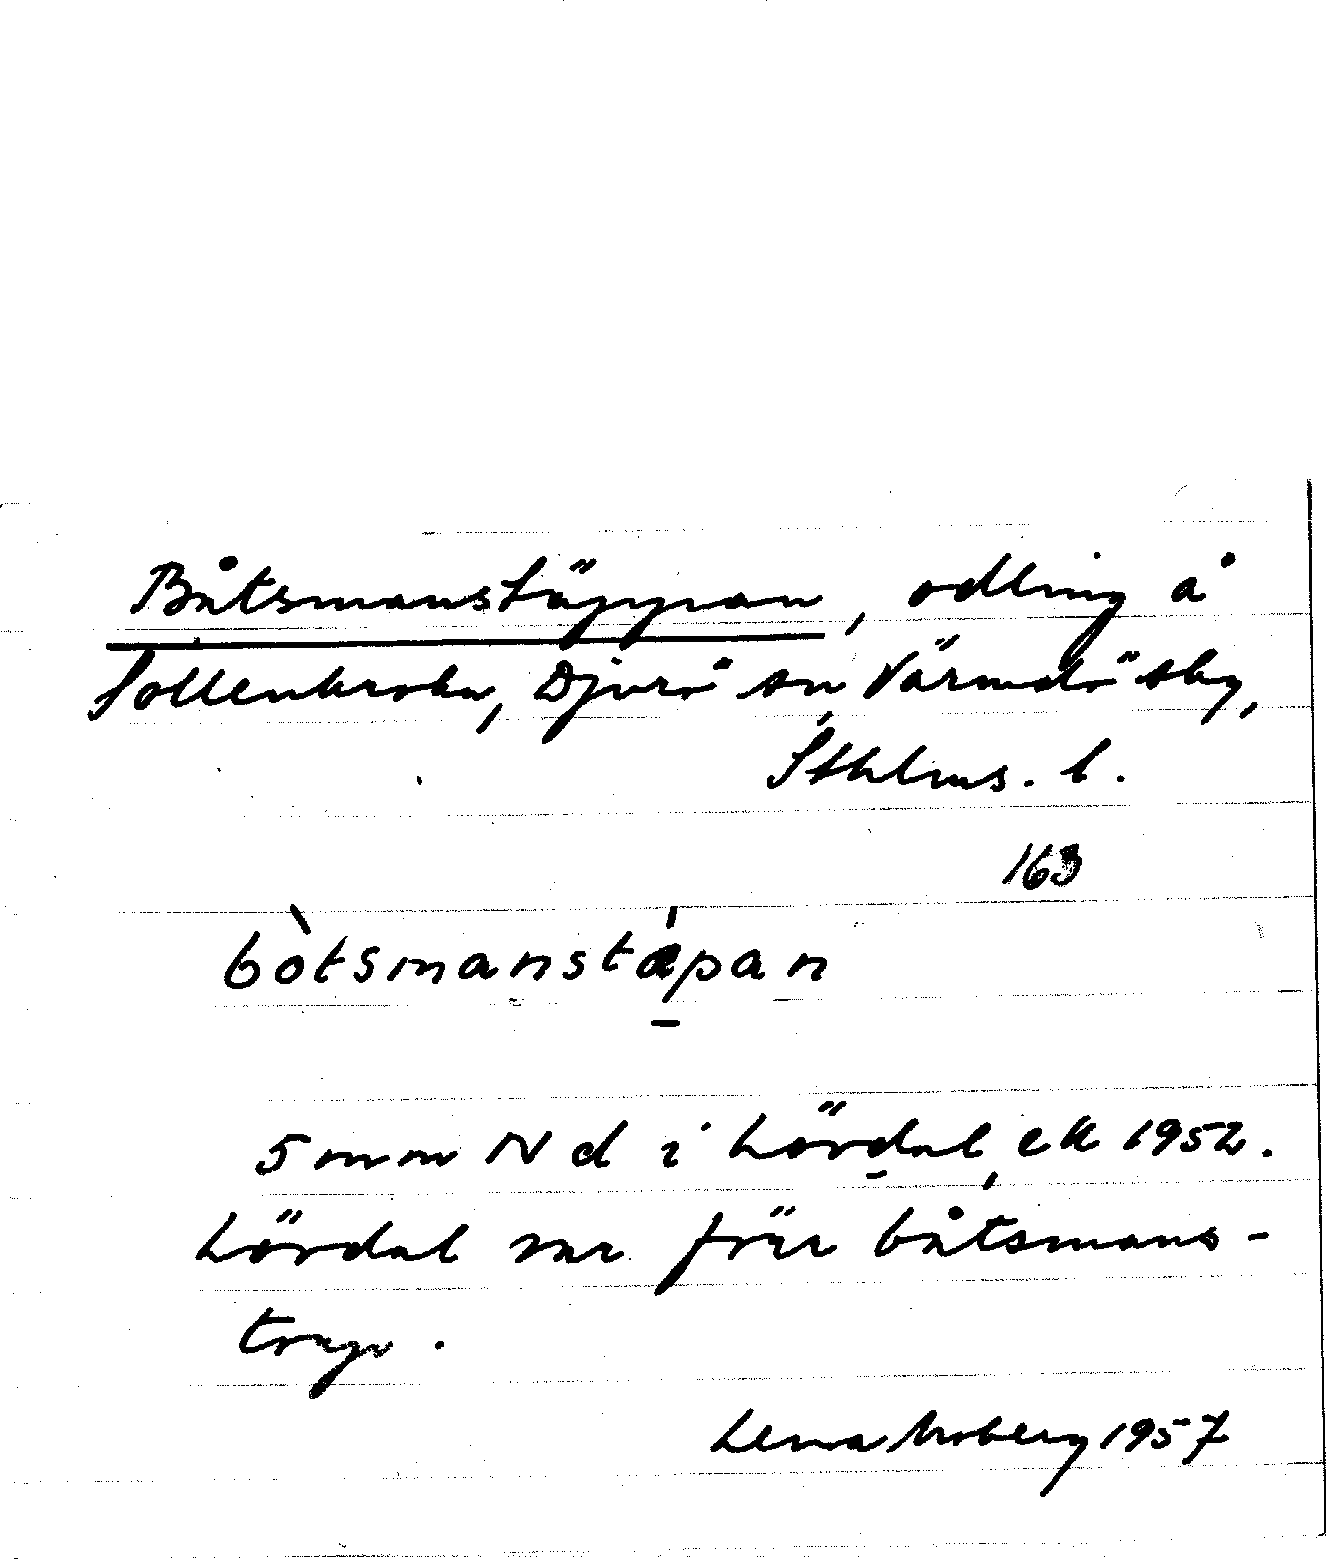 Båtsmanstäppan, odling å
Sollenkroka, Djurö sn, Värmdö skg,
Sthlms. l.
163
bòtsmanstǽpan
5 mm N d i Lördal, ek 1952.
Lördal var förr båtsmans-
torp.
Lena Moberg 1957